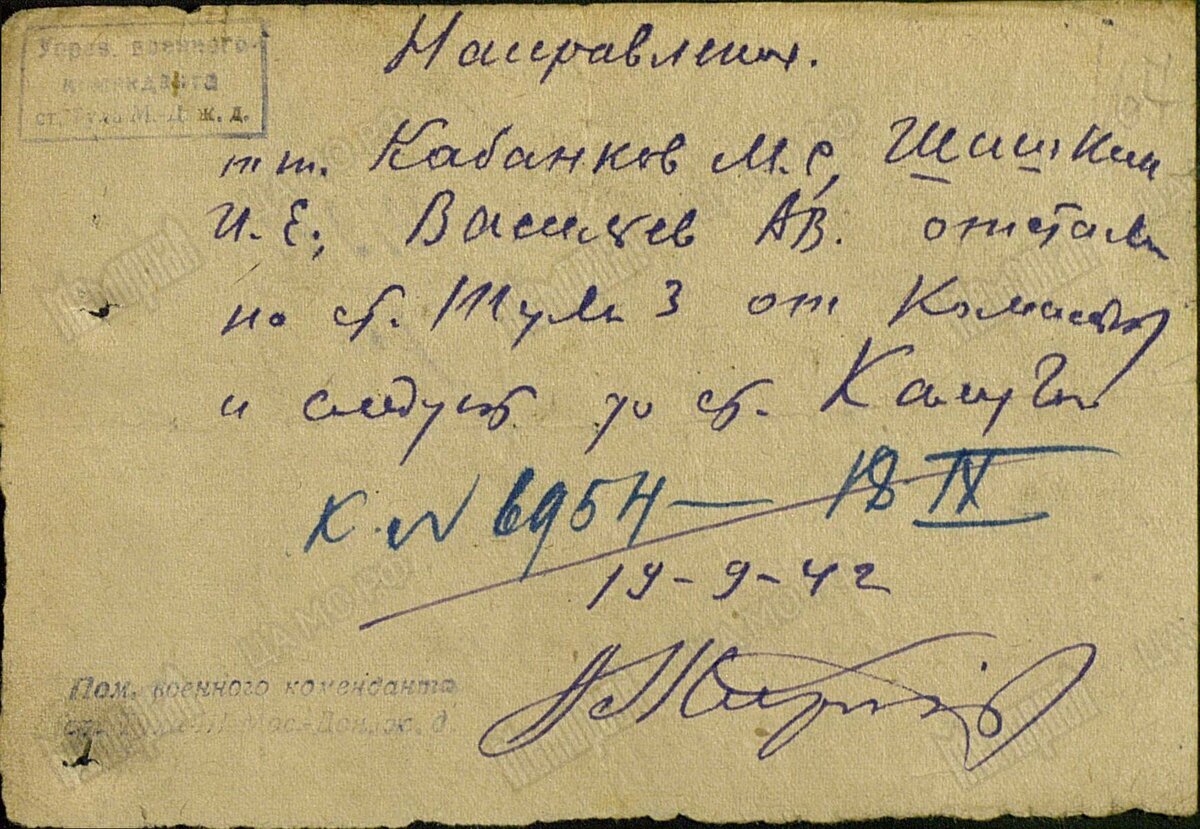 Управ. военного
коменданта
ст. Тула М.-Д ж. д.
Направление.
тт. Кабанков М.С, Шишкин
И.Е., Васильев А.В. отстали
на ст. Тула 3 от команды
и следуют до ст. Калуга
К. № 6954 — 18 IX
19-9-42
Пом. военного коменданта
Мос.-Дон. ж. д.